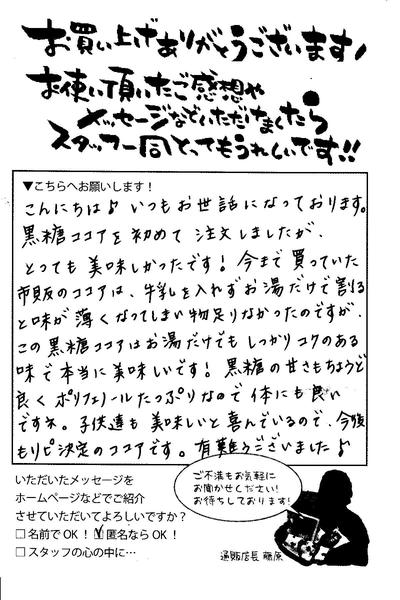 お買い上げありがとうございます!
お使い頂いたご感想や
メッセージなどいただけましたら
スタッフ一同とってもうれしいです!!
▼こちらへお願いします!
こんにちは♪いつもお世話になっております。
黒糖ココアを初めて注文しましたが、
とっても美味しかったです!今まで買っていた
市販のココアは、牛乳を入れずお湯だけで割る
と味が薄くなってしまい物足りなかったのですが、
この黒糖ココアはお湯だけでもしっかりコクのある
味で本当に美味しいです!黒糖の甘さもちょうど
良くポリフェノールたっぷりなので体にも良い
ですネ。子供達も美味しいと喜んでいるので、今後
もリピ決定のココアです。有難うございました♪
いただいたメッセージを
ホームページなどでご紹介
させていただいてよろしいですか?
□名前でOK! ☑匿名ならOK!
□スタッフの心の中に…
ご不満もお気軽に
お聞かせください!
お待ちしております!
通販店長 藤原